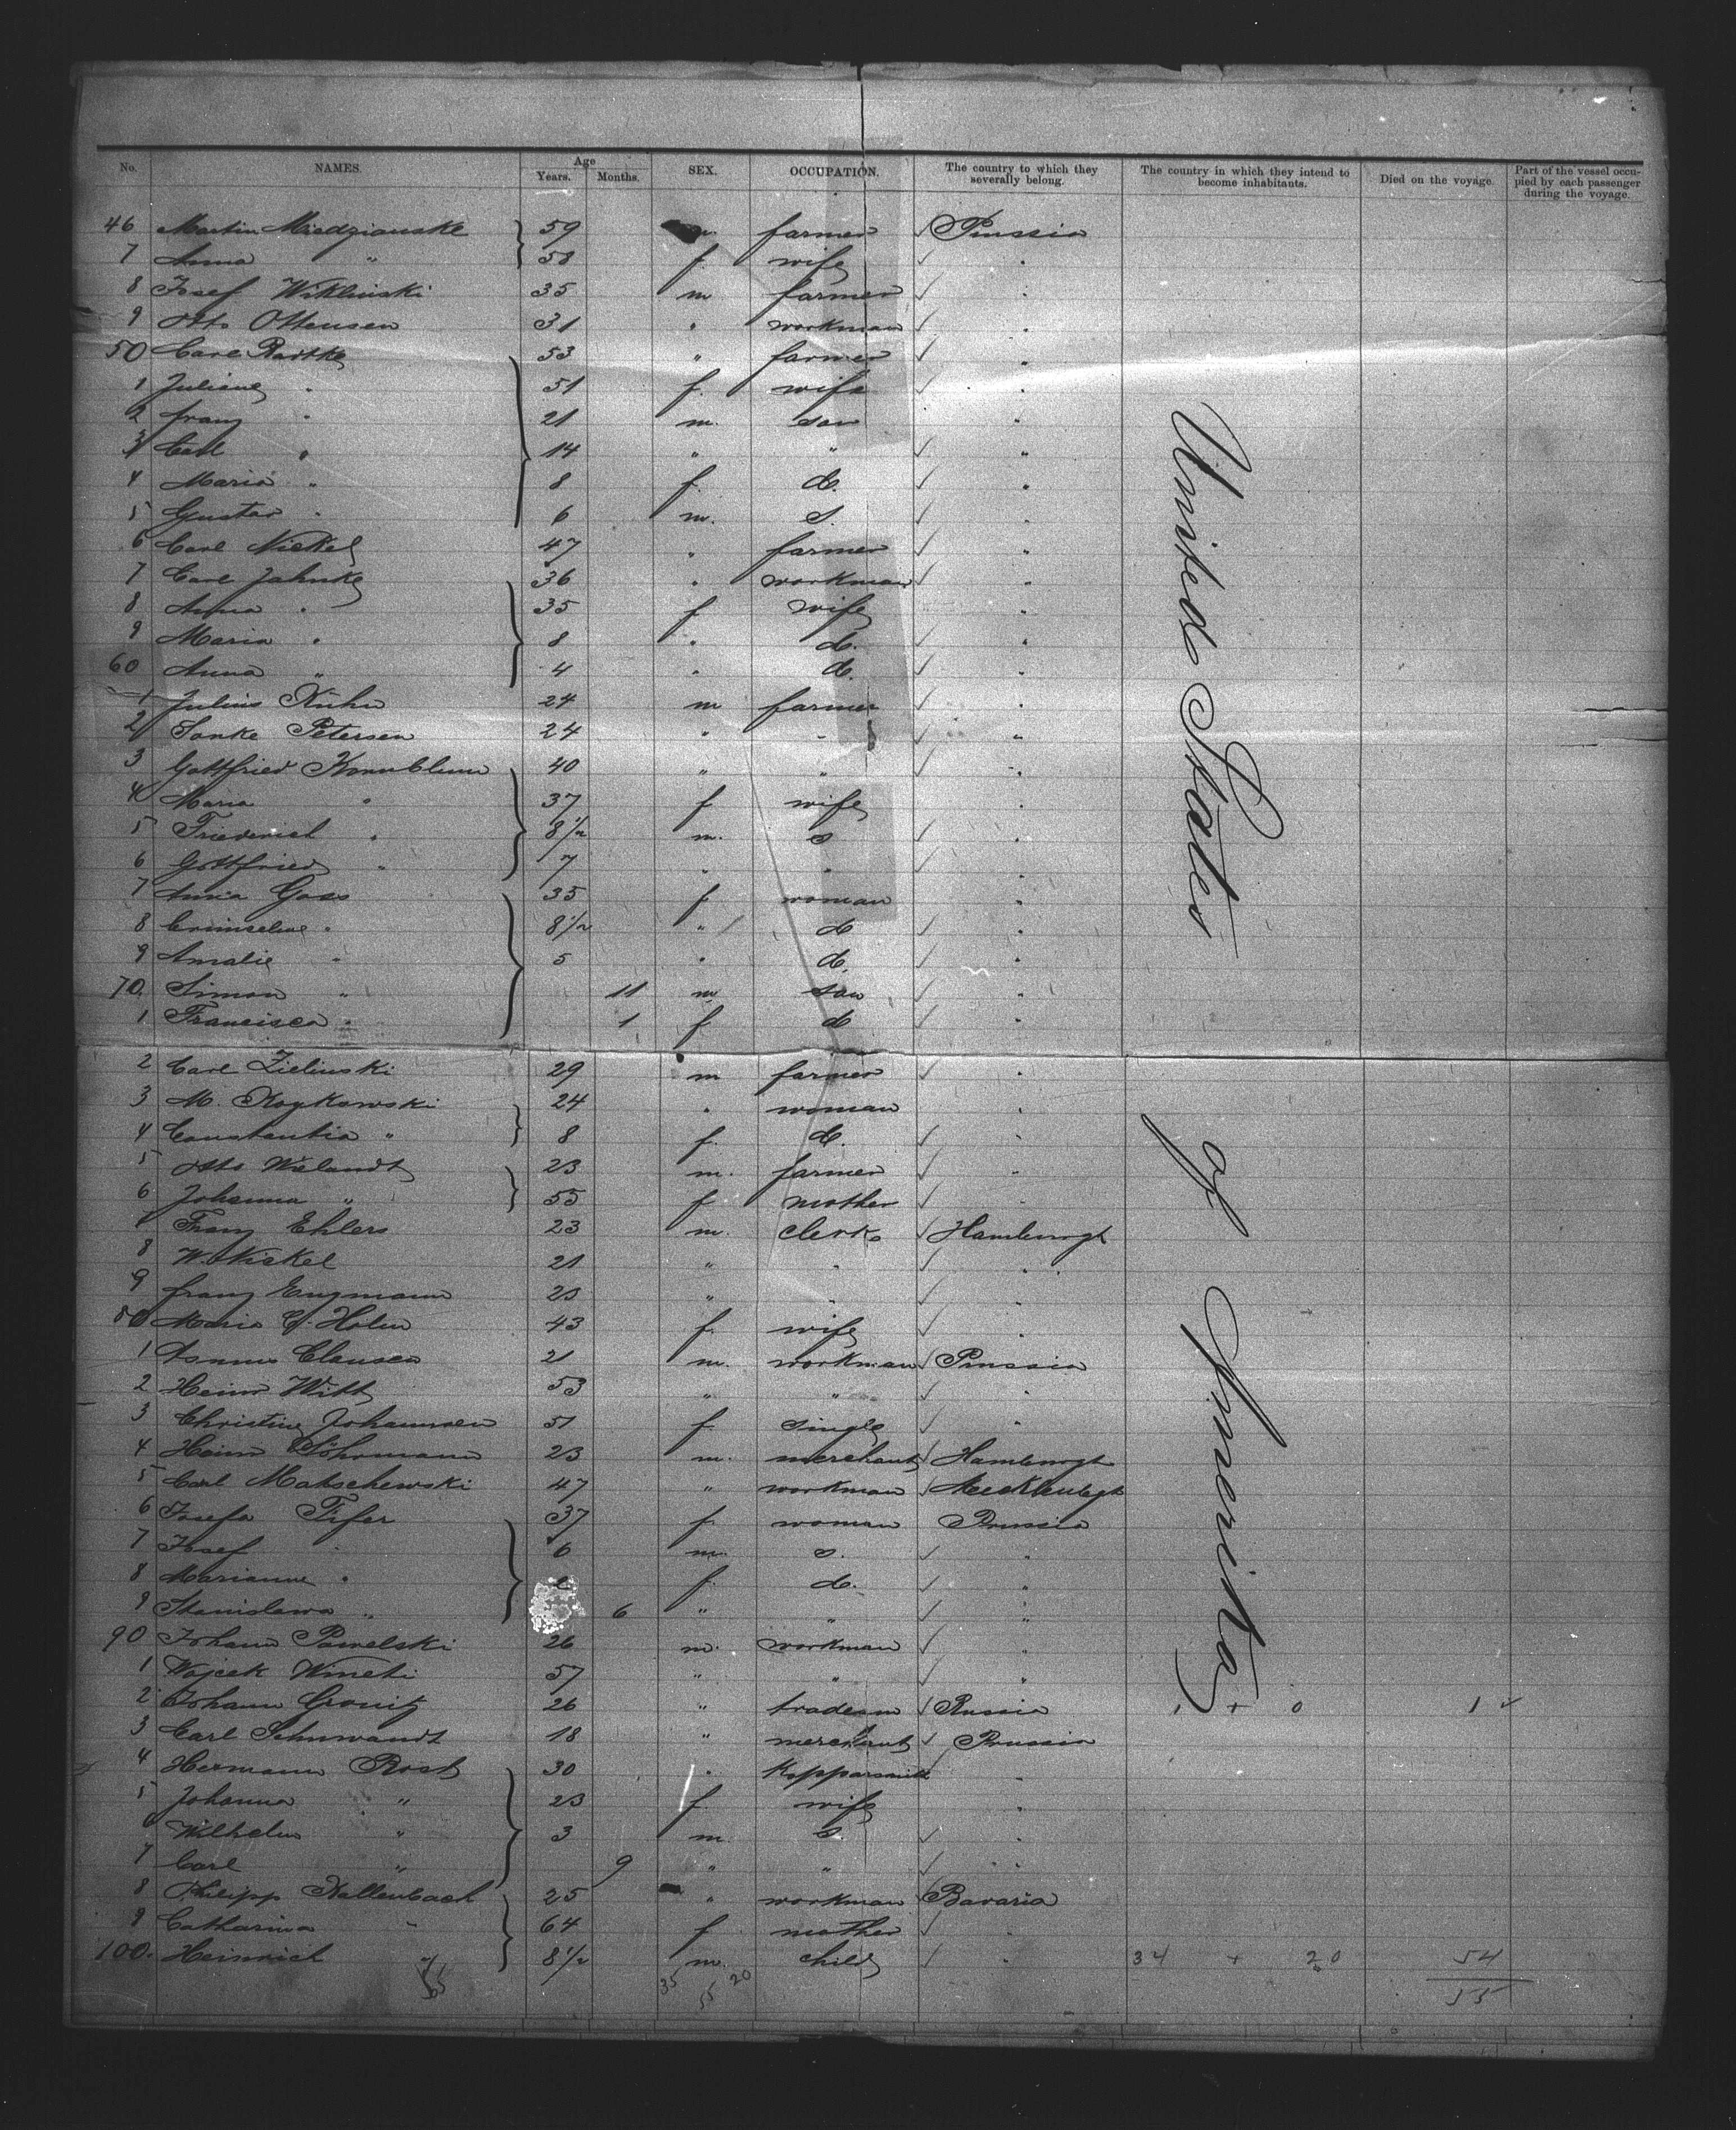 No. NAMES. Age Years. Months. SEX. OCCUPATION. The country to which they severally belong. The country in which they intend to become inhabitants. Died on the voyage. Part of the vessel occupied by each passenger during the voyage.
46 Martin Miedzianske 59 m. farmer ✓ Prussia
7 Anna " 58 f. wife ✓ "
8 Josef Wiklinski 35 m farmer ✓ "
9 Otto Ottensen 31 " workman ✓ "
50 Carl Radtke 53 " farmer ✓ "
1 Juliane " 51 f. wife ✓ "
2 Franz " 21 m. son "
3 Carl " 14 " " ✓ "
4 Maria " 8 f. d. ✓ "
5 Gustav " 6 m. s. ✓ "
6 Carl Nickel 47 " farmer ✓ "
7 Carl Jahnke 36 " workman ✓ "
8 Anna " 35 f wife ✓ "
9 Maria " 8 " d. ✓ "
60 Anna " 4 " d. ✓ "
1 Julius Kuhn 24 m farmer ✓ "
2 Sonke Petersen 24 " " ✓ "
3 Gottfried Kornblum 40 " " ✓ "
4 Maria " 37 f wife ✓ "
5 Friederich " 8 1/2 m. s ✓ "
6 Gottfried " 7 " " ✓ "
7 Anna Goss 35 f. woman "
8 " 8 1/2 " d ✓ "
9 Amalie " 5 " d. ✓ "
70. Simon " 11 m son ✓ "
1 Francisca " 1 f d ✓ "
2 Carl Zielinski 29 m farmer ✓ "
3 M. Roykowski 24 " woman "
4 Constantia " 8 f. d. ✓ "
5 Otto Wielandt 23 m. farmer ✓ "
6 Johanna " 55 f mother ✓ "
7 Franz Ehlers 23 m. clerk ✓ Hamburgh
8 W. Niskel 21 " " ✓ "
9 Franz Engmann 23 " " ✓ "
80 Maria C. Holm 43 f. wife ✓ "
1 Asmus Clausen 21 m. workman ✓ Prussia
2 Heinr Witt 53 " " ✓ "
3 Christine Johannsen 51 f single ✓ "
4 Heinr 23 m. merchant ✓ Hamburgh
5 Carl Makschewski 47 " workman ✓ Mecklenbgh
6 Josefa Fifer 37 f. woman Prussia
7 Josef " 6 m. s. ✓ "
8 Marianne " f. d. ✓ "
9 Stanislawa " 6 " " ✓ "
90 Johann Pawelski 26 m. workman ✓ "
1 Wojcek 57 " " ✓ "
2 Johann Gronitz 26 " tradesm ✓ Russia 1 + 0 1 ✓
3 Carl Schwandt 18 " merchant ✓ Prussia
4 Hermann Rost 30 " Kopparsmith ✓ "
5 Johanna " 23 f wife "
6 Wilhelm " 3 m. s. ✓ "
7 Carl " 9 " " ✓ "
8 Philipp Kallenbach 25 " workman ✓ Bavaria
9 Catharina " 64 f mother ✓ "
100. Heinrich " 8 1/2 m. child ✓ " 34 + 20 54
55 35 20 55 55
United States
of America